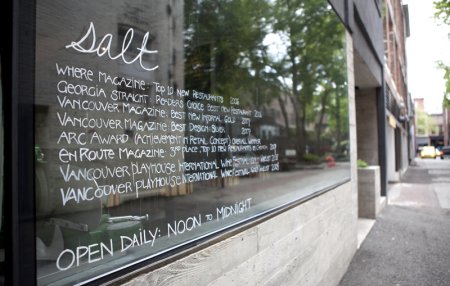 salt
WHERE MAGAZINE: TOP 10 NEW RESTAURANTS 2007
GEORGIA STRAIGHT: READERS CHOICE BEST NEW RESTAURANT
VANCOUVER MAGAZINE: BEST NEW INFORMAL GOLD
VANCOUVER MAGAZINE: BEST DESIGN SILVER 2007
ARC AWARD (ACHIEVEMENT IN RETAIL CONCEPT) OVERALL WINNER
EN ROUTE MAGAZINE: 3RD PLACE, TOP 10 NEW RESTAURANTS IN CANADA
VANCOUVER PLAYHOUSE INTERNATIONAL WINE FESTIVAL
VANCOUVER PLAYHOUSE INTERNATIONAL WINE FESTIVAL
OPEN DAILY: NOON TO MIDNIGHT